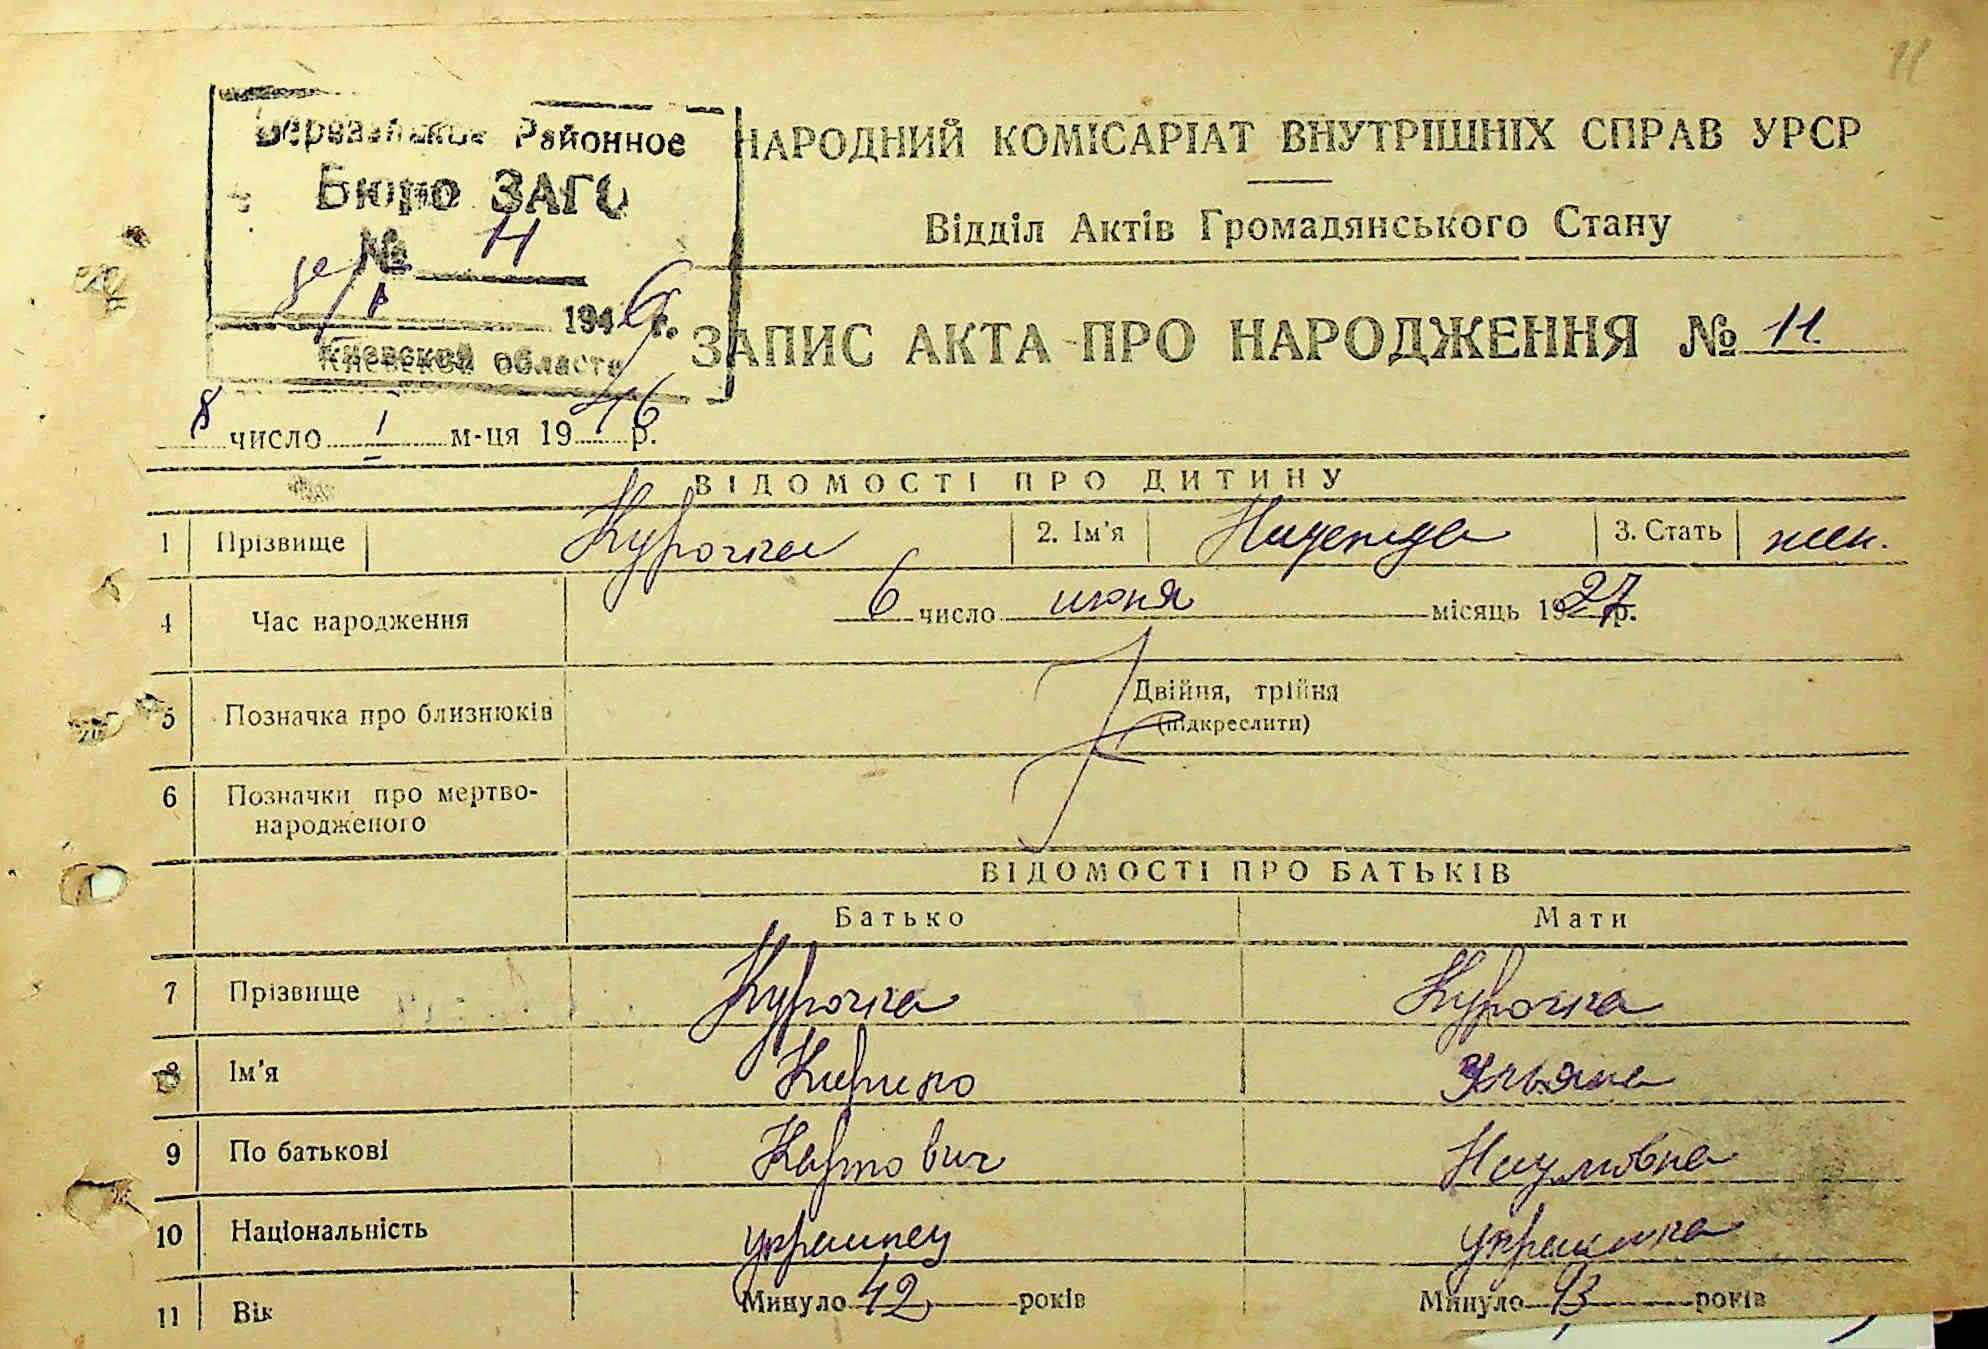 11
Районное
Бюро ЗАГС
№ 11
8/I 1946 г.
Киевской области
НАРОДНИЙ КОМІСАРІАТ ВНУТРІШНІХ СПРАВ УРСР
Відділ Актів Громадянського Стану
ЗАПИС АКТА ПРО НАРОДЖЕННЯ № 11.
8 число I м-ця 1946 р.
ВІДОМОСТІ ПРО ДИТИНУ
1 Прізвище Курочка 2. Ім'я Надежда 3. Стать жен.
4 Час народження 6 число июня місяць 1927 р.
5 Позначка про близнюків Двійня, трійня
(підкреслити)
6 Позначки про мертво-
народженого
ВІДОМОСТІ ПРО БАТЬКІВ
Батько Мати
7 Прізвище Курочка Курочка
8 Ім'я Кирило Ульяна
9 По батькові Карпович Наумовна
10 Національність украинец украинка
11 Вік Минуло 42 років Минуло 43 років